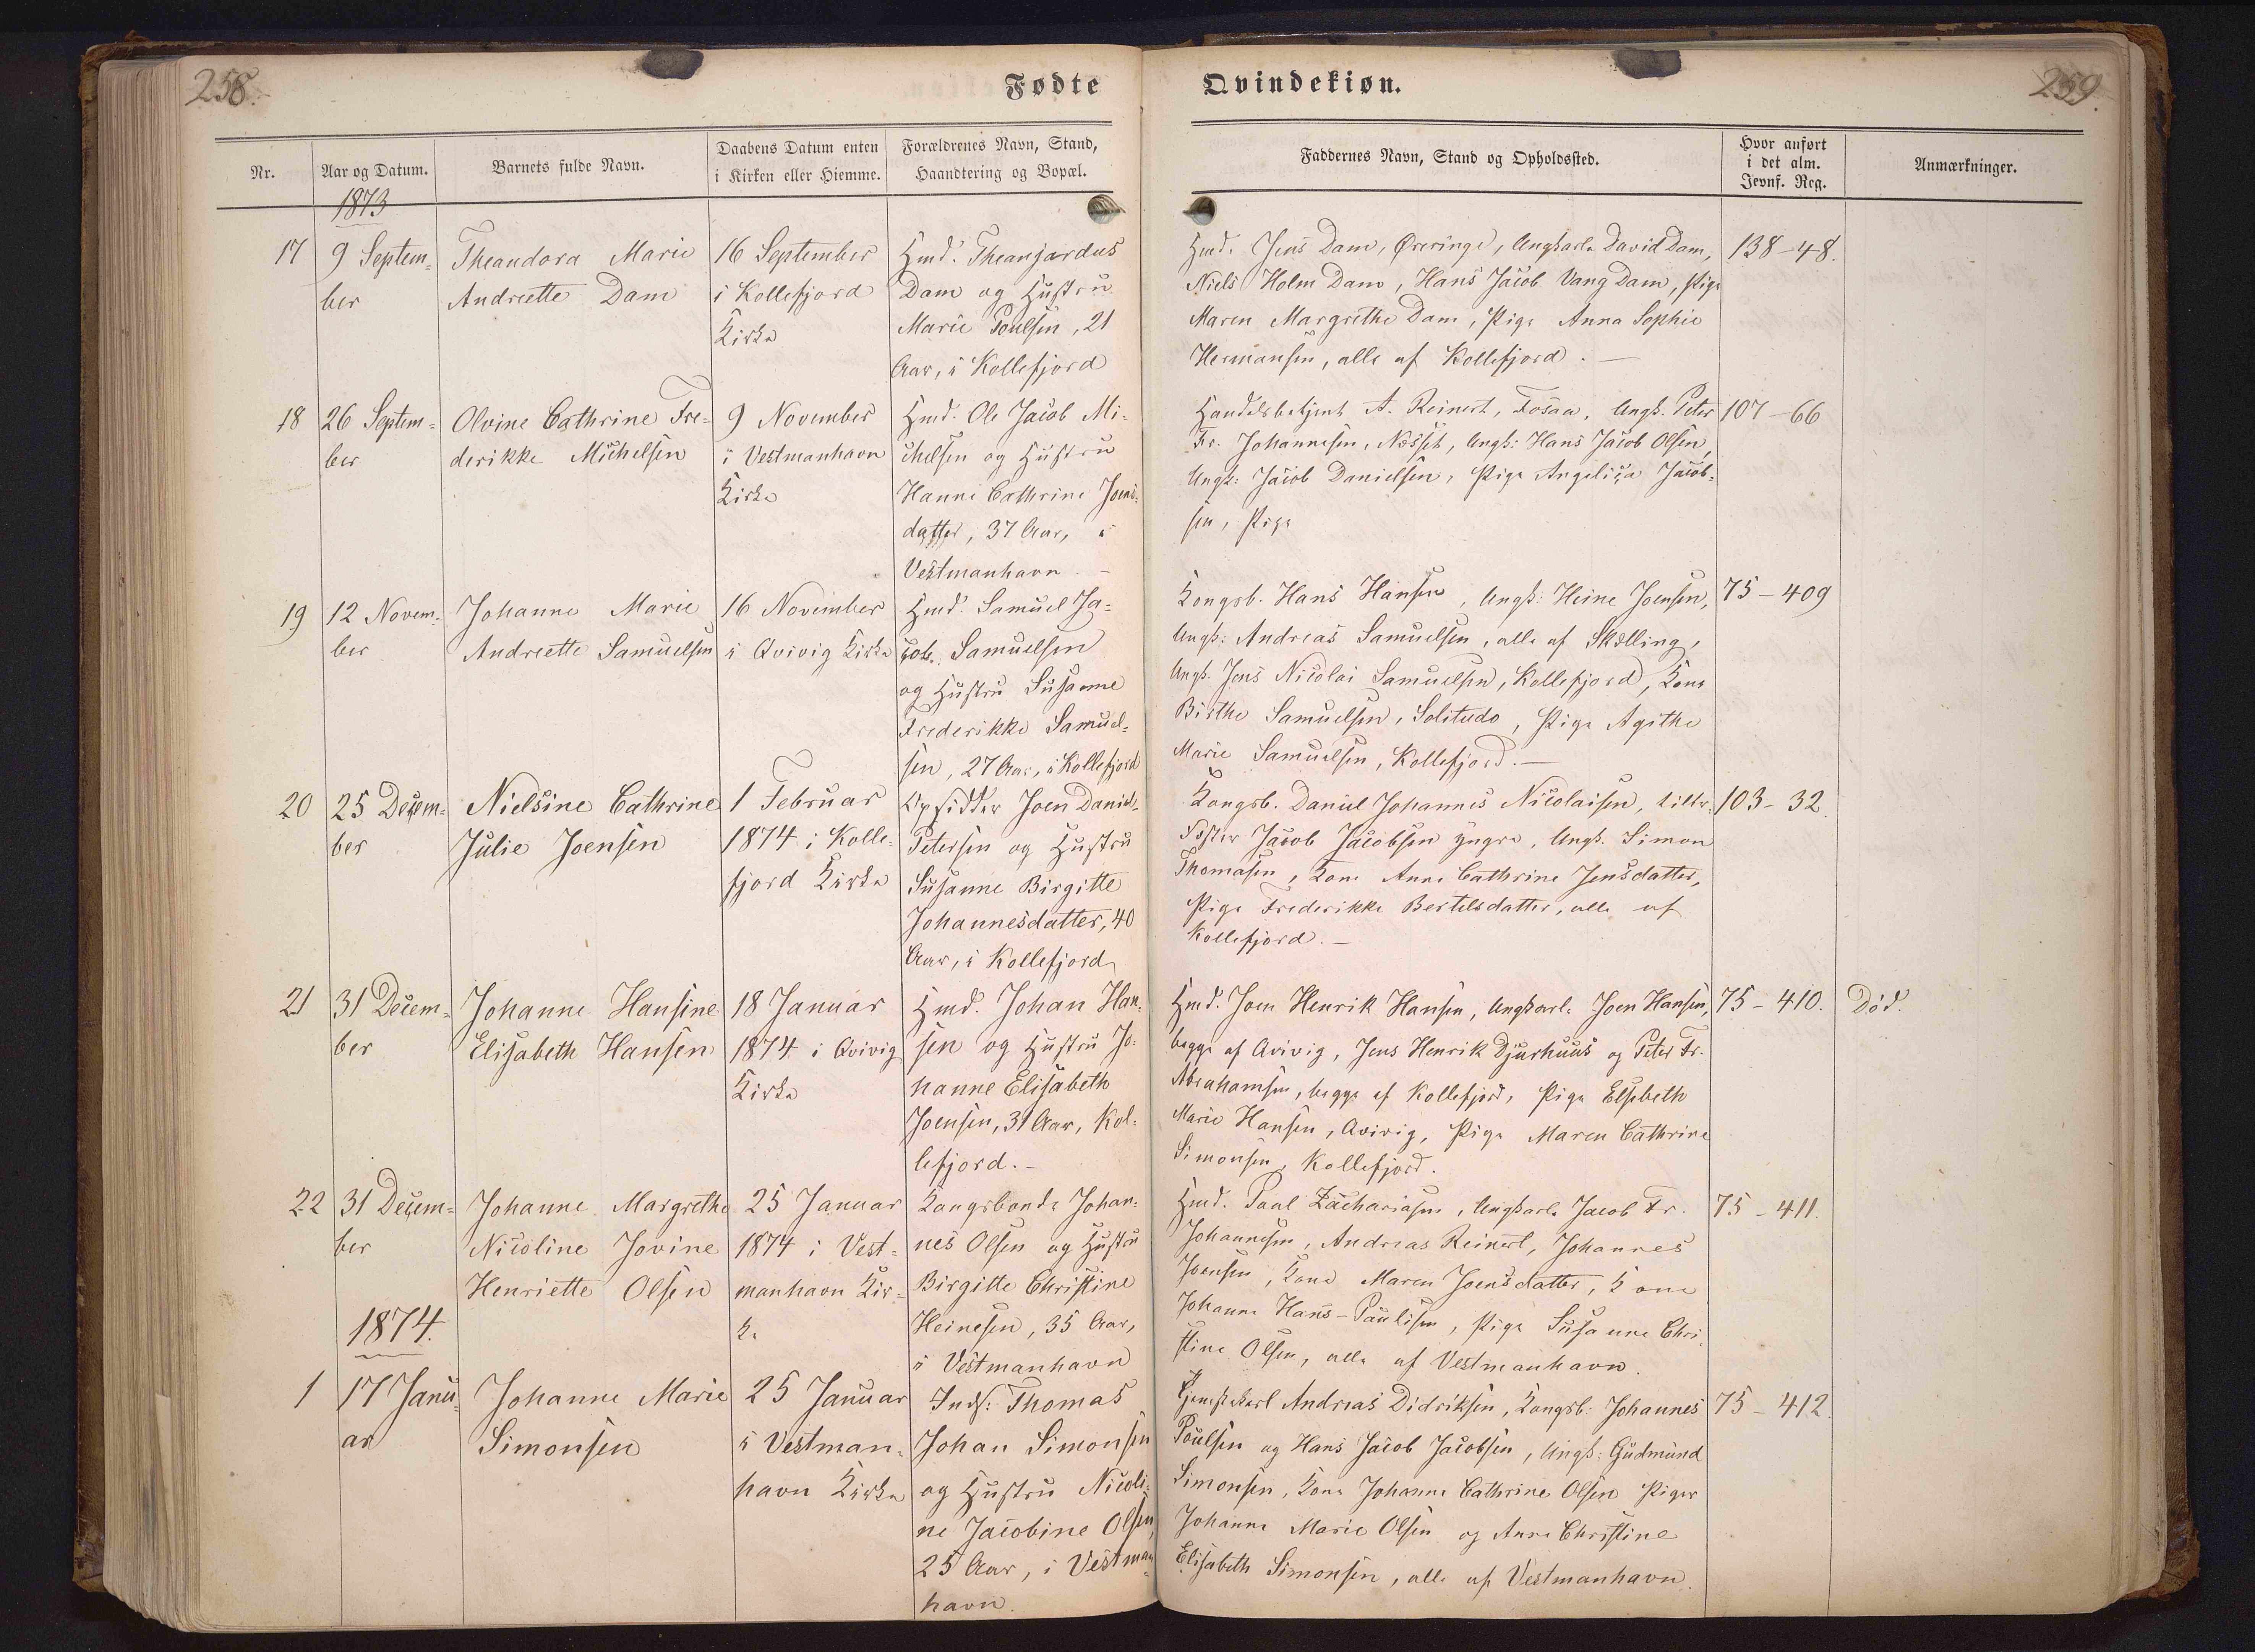 258.
Fødte
Nr.
Aar og Datum.
Barnets fulde Navn.
Daabens Datum enten
i Kirken eller Hiemme.
Forældrenes Navn, Stand,
Haandtering og Bopæl.
1873
17
9 Septem-
ber
Theandora Marie
Andreette Dam
16 September
i Kollefjord
Kirke
Hmd. Theangardus
Dam og Hustru
Marie Poulsen, 21
Aar, i Kollefjord
18
26 Septem-
ber
Olvine Cathrine Fre-
derikke Michelsen
9 November
i Vestmanhavn
Kirke
Hmd. Ole Jacob Mi-
chelsen og Hustru
Hanne Cathrine Joens-
datter, 37 Aar, i
Vestmanhavn. -
19
12 Novem-
ber
Johanne Marie
Andreette Samuelsen
16 November
i Qvivig Kirke
Hmd. Samuel Ja-
cob Samuelsen
og Hustru Susanne
Frederikke Samuel-
sen, 27 Aar, i Kollefjord
20
25 Decem-
ber
Nielsine Cathrine
Julie Joensen
1 Februar
1874 i Kolle-
fjord Kirke
Opsidder Joen Daniel
Petersen og Hustru
Susanne Birgitte
Johannesdatter, 40
Aar, i Kollefjord
21
31 Decem-
ber
Johanne Hansine
Elisabeth Hansen
18 Januar
1874 i Qvivig
Kirke
Hmd. Johan Han-
sen og Hustru Jo-
hanne Elisabeth
Joensen, 31 Aar, Kol-
lefjord. -
22
31 Decem-
ber
Johanne Margrethe
Nicoline Jovine
Henriette Olsen
25 Januar
1874 i Vest-
manhavn Kir-
ke
Kongsbonde Johan-
nes Olsen og Hustru
Birgitte Christine
Heinesen, 35 Aar,
i Vestmanhavn
1874.
1
17 Janu-
ar
Johanne Marie
Simonsen
25 Januar
i Vestman-
havn Kirke
Inds: Thomas
Johan Simonsen
og Hustru Nicoli-
ne Jacobine Olsen,
25 Aar, i Vestman-
havn.
Qvindekiøn.
259.
Faddernes Navn, Stand og Opholdssted.
Hvor anført
i det alm.
Jevnf. Reg.
Anmærkninger.
Hmd. Jens Dam, Øreringe, Ungkarle David Dam,
Niels Holm Dam, Hans Jacob Vang Dam, Pige
Maren Margrethe Dam, Pige Anna Sophie
Hermansen, alle af Kollefjord. -
138-48.
Handelsbetjent A. Reinert, Fosaa, Ungk. Peter
Fr. Johannesen, Næsset, Ungk: Hans Jacob Olsen,
Ungk: Jacob Danielsen, Pige Angelica Jacob-
sen, Pige
107-66
Kongsb. Hans Hansen, Ungk: Heine Joensen,
Ungk: Andreas Samuelsen, alle af Skælling,
Ungk. Jens Nicolai Samuelsen, Kollefjord, Kone
Birthe Samuelsen, Solitudo, Pige Agathe
Marie Samuelsen, Kollefjord. -
75-409
Kongsb. Daniel Johannes Nicolaisen,
Jacob Jacobsen yngre, Ungk. Simon
Thomasen, Kone Anne Cathrine Jensdatter,
Pige Frederikke Bertelsdatter, alle af
Kollefjord. -
103-32.
Hmd. Joen Henrik Hansen, Ungkarle Joen Hansen,
begge af Qvivig, Jens Henrik Djurhuus og Peter Fr.
Abrahamsen, begge af Kollefjord, Pige Elsebeth
Marie Hansen, Qvivig, Pige Maren Cathrine
Simonsen, Kollefjord.
75-410.
Død.
Hmd. Poul Zachariasen, Ungkarle Jacob Fr.
Johannesen, Andreas Reinert, Johannes
Joensen, Kone Maren Joensdatter, Kone
Johanne Hans-Paulisen, Pige Susanne Chri-
stine Olsen, alle af Vestmanhavn.
75-411.
Tjenestekarl Andreas Didriksen, Kongsb: Johannes
Poulsen og Hans Jacob Jacobsen, Ungk: Gudmund
Simonsen, Kone Johanne Cathrine Olsen Piger
Johanne Marie Olsen og Anne Christine
Elisabeth Simonsen, alle af Vestmanhavn.
75-412.